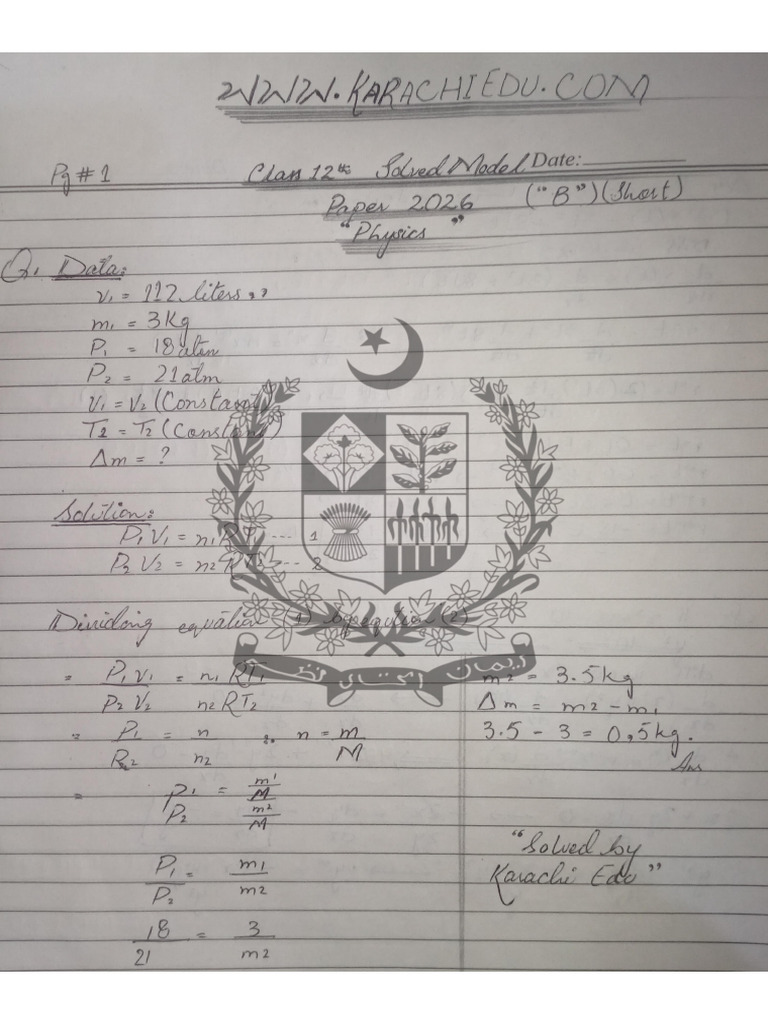 WWW.KARACHIEDU.COM
Pg # 1
Class 12th Solved Model Date:
Paper 2026 ("B") (Short)
"Physics"
Q1 Data:
V1 = 112 liters,,
m1 = 3kg
P1 = 18 atm
P2 = 21 atm
V1 = V2 (Constant)
T2 = T2 (Constant)
Δm = ?
Solution:
P1 V1 = n1 R T1 --- 1
P2 V2 = n2 R T2 --- 2
equation (1) by eqution (2)
= P1 V1 = n1 RT1
P2 V2 n2 RT2
= P1 = n ∴ n = m
n2 M
= P1 = m1
M
P2 m2
M
P1 = m1
P2 m2
18 = 3
21 m2
m2 = 3.5kg
Δm = m2 - m1
3.5 - 3 = 0,5kg.
Ans
"Solved by
Karachi Edu"